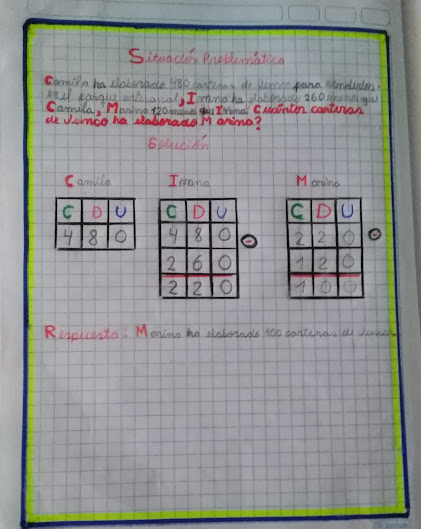 Situación Problemática
Camila ha elaborado 480 carteras de Junco para venderlos
en el parque artesanal, Irrana ha elaborado 260 menos que
Camila, Marina 120 menos que Irrana. Cuántos carteras
de Junco ha elaborado Marina?
Solución
Camila Irrana Marino
C D U C D U C D U
4 8 0 4 8 0 - 2 2 0 -
2 6 0 1 2 0
2 2 0 1 0 0
Respuesta: Marina ha elaborado 100 carteras de Junco